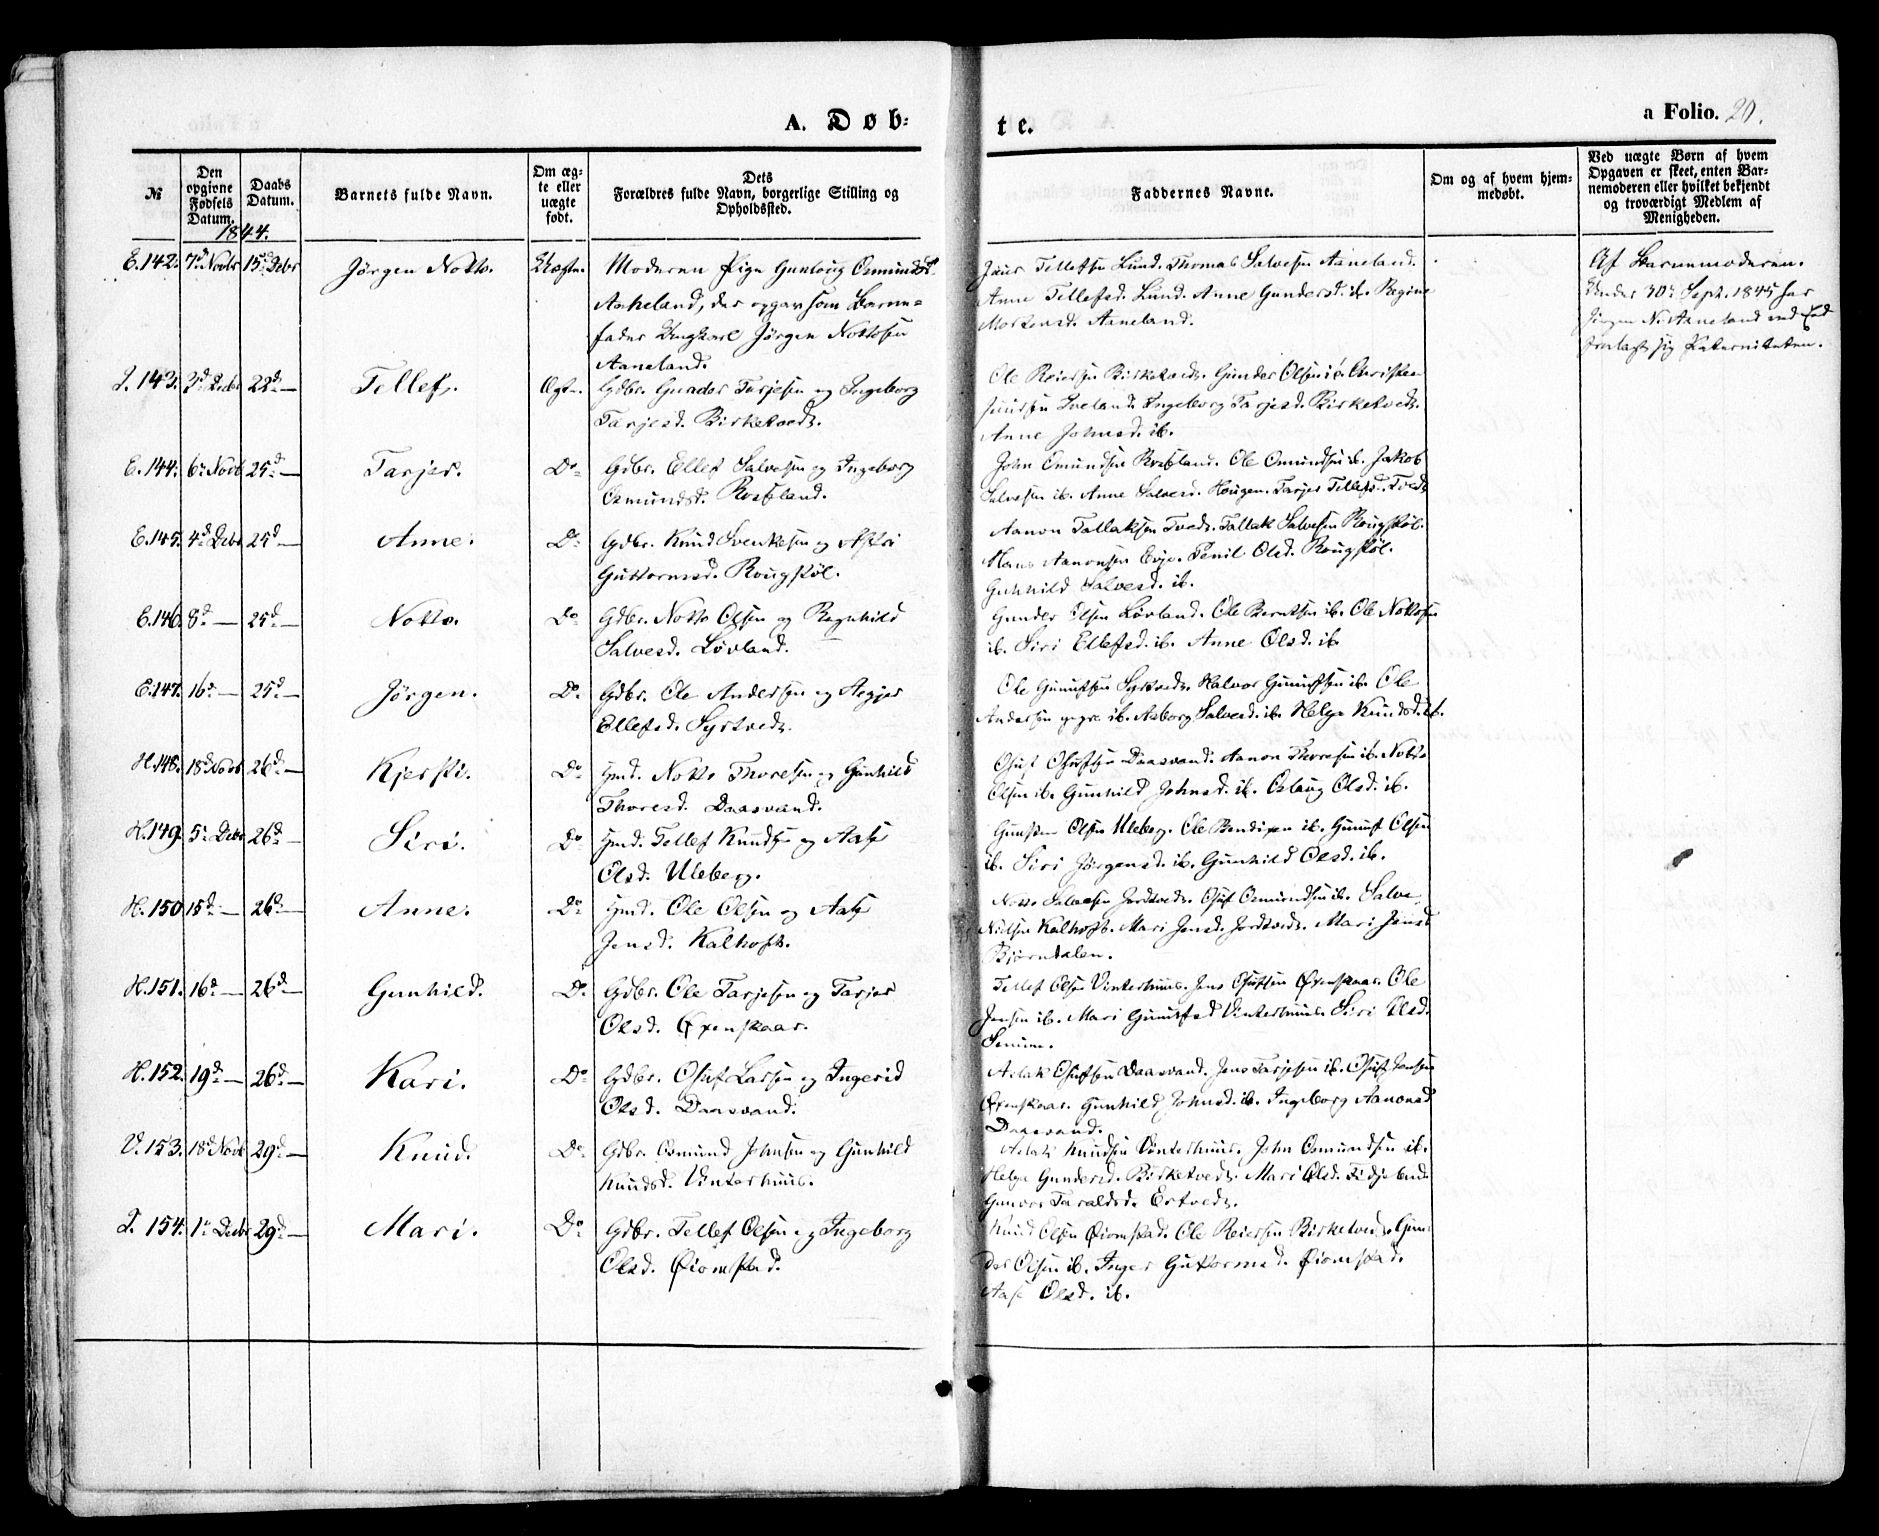 A. Døb-
te.
a Folio. 20.
№
Den opgivne Fødsels Datum.
Daabs Datum.
Barnets fulde Navn.
Om ægte eller uægte født.
Dets
Forældres fulde Navn, borgerlige Stilling og
Opholdssted.
Faddernes Navne.
Om og af hvem hjem-
medøbt.
Ved uægte Børn af hvem
Opgaven er skeet, enten Bar-
nemoderen eller hvilket bekjendt
og troværdigt Medlem af
Menigheden.
1844.
E. 142. 7d Novbr 15d Debr Jørgen Notto. Uægte. Moderen Pige Gunborg Osmundsd.
Aaneland, der opgav som Barne-
fader Ungkarl Jørgen Nottosen
Aaneland.
Jens Tellefsen Lund. Thomas Salvesen Aaneland.
Anne Tellefsd. Lund. Anne Gundersd. ib. Regine
Mortensd. Aaneland.
Af Barnemoderen.
Under 30. Sept. 1845 har
Jørgen N. Aaneland ved Eed
fralagt sig Paterniteten.
I. 143. 3d Debr 22d — Tellef. Ægte. Gdbr. Gunder Tarjesen og Ingeborg
Tarjesd. Birketvedt.
Ole Reiersen Birketvedt. Gunder Olsen ib. Christen
Iveland. Ingeborg Tarjesd. Birketvedt.
Anne Johnsd. ib.
E. 144. 6 Novb 25d — Tarjer. Do Gdbr. Ellef Salvesen og Ingeborg
Osmundsd. Rosseland.
John Omundsen Rosseland. Ole Omundsen ib. Jakob
Salvesen ib. Anne Salvesd. Hougen. Tarjer Tellefsd. Tvedt
E. 145. 4d Debr 25d — Anne. Do Gdbr. Knud Svenkesen og Astri
Guttormsd. Rougstøl.
Aanon Tallaksen Tvedt. Tallak Salvesen Rougstøl.
Hans Aanonsen Evje. Pernil Olsd. Rougstøl.
Gunhild Salvesd. ib.
E. 146. 8d — 25d — Notto. Do Gdbr. Notto Olsen og Ragnhild
Salvesd. Løvland.
Gunder Olsen Løvland. Ole Berntsen ib. Ole Nottosen
ib. Siri Ellefsd. ib. Anne Olsd. ib.
E. 147. 16 — 25d — Jørgen. Do Gdbr. Ole Andersen og Aegjer
Ellefsd. Syrtvedt.
Ole Gunufsen Syrtvedt. Halvor Gunufsen ib. Ole
Andersen yngre ib. Asborg Salvesd. ib. Helge Knudsd. ib.
H. 148. 18d Novb 26d — Kjersti. Do Hmd. Notto Thoresen og Gunhild
Thoresd. Daasvand.
Osuf Osufsen Daasvand. Aanon Thoresen ib. Notto
Olsen ib. Gunhild Johnsd. ib. Oslaug Olsd. ib.
H. 149. 5 Debr 26d — Siri. Do Hmd. Tellef Knudsen og Aase
Olsd. Uleberg.
Gunsten Olsen Uleberg. Ole Bendixen ib. Gunuf Olsen
ib. Siri Jørgensd. ib. Gunhild Olsd. ib.
H. 150 15d — 26d — Anne. Do Hmd. Ole Olsen og Aase
Jensd. Kalhoft.
Notto Salvesen Jordtvedt. Osuf Osmundsen ib. Salve
Nielsen Kalhoft. Mari Jensd. Jordtvedt. Mari Jensd
Bjørndalen.
H. 151. 16d — 26d — Gunhild. Do Gdbr. Ole Tarjesen og Tarjer
Olsd. Øxenskaar.
Tellef Olsen Vinterhuus. Jens Osufsen Øxenskaar. Ole
Jensen ib. Mari Gunufsd Vinterhuus. Siri Olsd.
H. 152. 19d — 26d — Kari. Do Gdbr. Osuf Larsen og Ingerid
Olsd. Daasvand.
Aslak Osufsen Daasvand. Jens Tarjesen ib. Osuf Jensen
Øxenskaar. Gunhild Johnsd. ib. Ingeborg Aanonsd
Daasvand.
V. 153. 18d Novb 29d — Knud. Do Gdbr. Osmund Johnsen og Gunhild
Knudsd. Vinterhuus.
Aslak Knudsen Vinterhuus. John Osmundsen ib.
Helge Gundersd. Birketvedt. Mari Olsd. Fidjeland
Gunvor Taraldsd. Ertvedt.
I. 154. 1 Debr 29d — Mari. Do Gdbr. Tellef Olsen og Ingeborg
Olsd. Øiomstad.
Knud Olsen Øiomstad. Ole Reiersen Birketvedt. Gun-
der Olsen ib. Inger Guttormsd. Øiomstad.
Aase Olsd. ib.